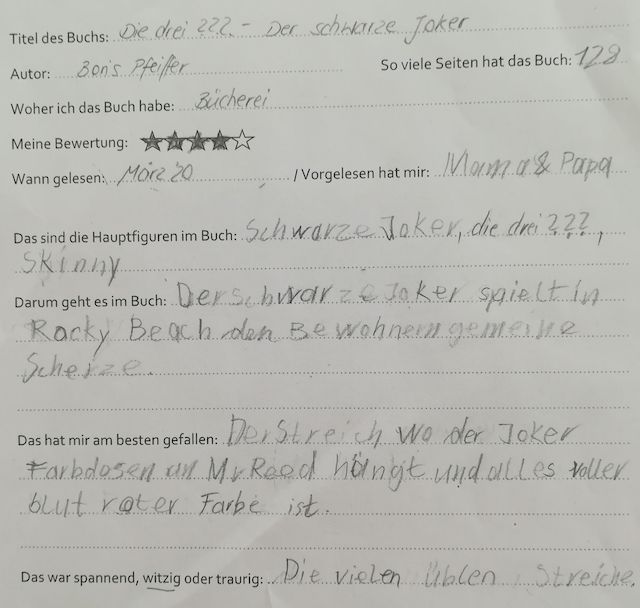 Titel des Buchs: Die drei ???. – Der schwarze Joker
Autor: Boris Pfeiffer So viele Seiten hat das Buch: 128
Woher ich das Buch habe: Bücherei
Meine Bewertung:
Wann gelesen: März 20 / Vorgelesen hat mir: Mama & Papa
Das sind die Hauptfiguren im Buch: Schwarze Joker, die drei ???,
Skinny
Darum geht es im Buch: Der Schwarze Joker spielt in
Rocky Beach den Bewohnern gemeine
Scherze.
Das hat mir am besten gefallen: Der Streich wo der Joker
Farbdosen an Mr Reed hängt und alles voller
blut roter Farbe ist.
Das war spannend, witzig oder traurig: Die vielen üblen Streiche.